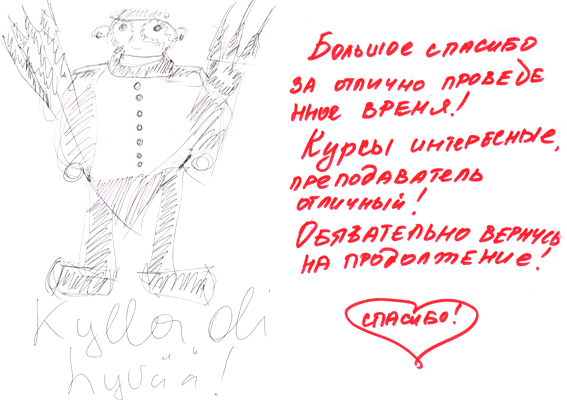 Kylla oli
hyvää!
Большое спасибо
за отлично проведе
нное время!
Курсы интересные,
преподаватель
отличный!
Обязательно вернусь
на продолжение!
спасибо!